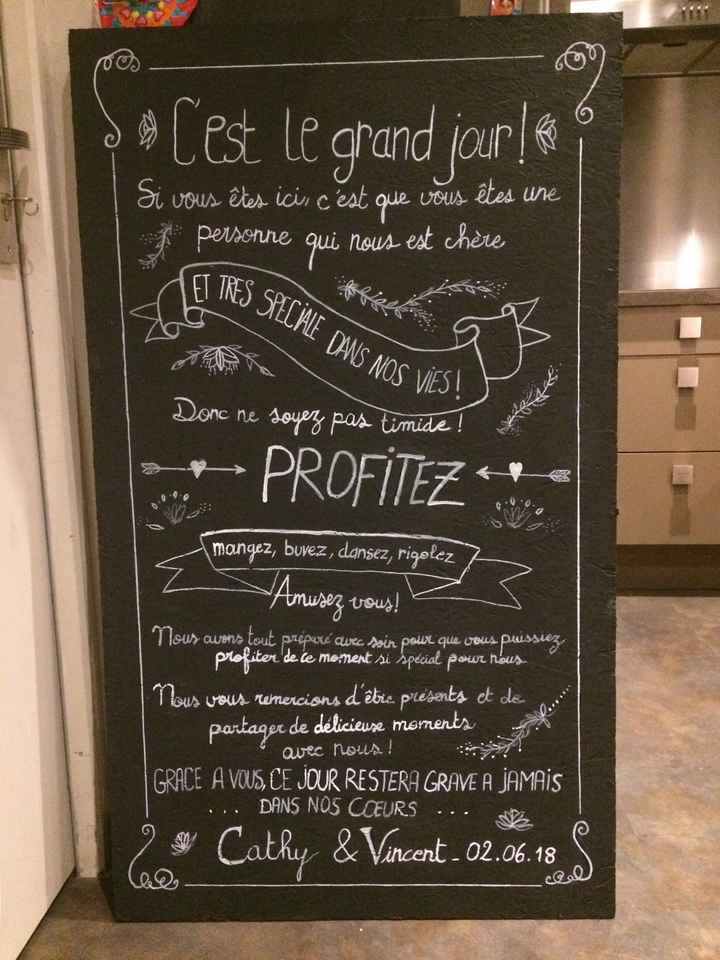 C'est le grand jour!
Si vous êtes ici,, c'est que vous êtes une
personne qui nous est chère
ET TRES SPECIALE DANS NOS VIES!
Donc ne soyez pas timide!
PROFITEZ
mangez, buvez, dansez, rigolez
Amusez vous!
Nous avons tout préparé avec soin pour que vous puissiez
profiter de ce moment si spécial pour nous
Nous vous remercions d'être présents et de
partager de délicieuse moments
avec nous!
GRACE A VOUS, CE JOUR RESTERA GRAVE A JAMAIS
... DANS NOS CŒURS ...
Cathy & Vincent - 02.06.18